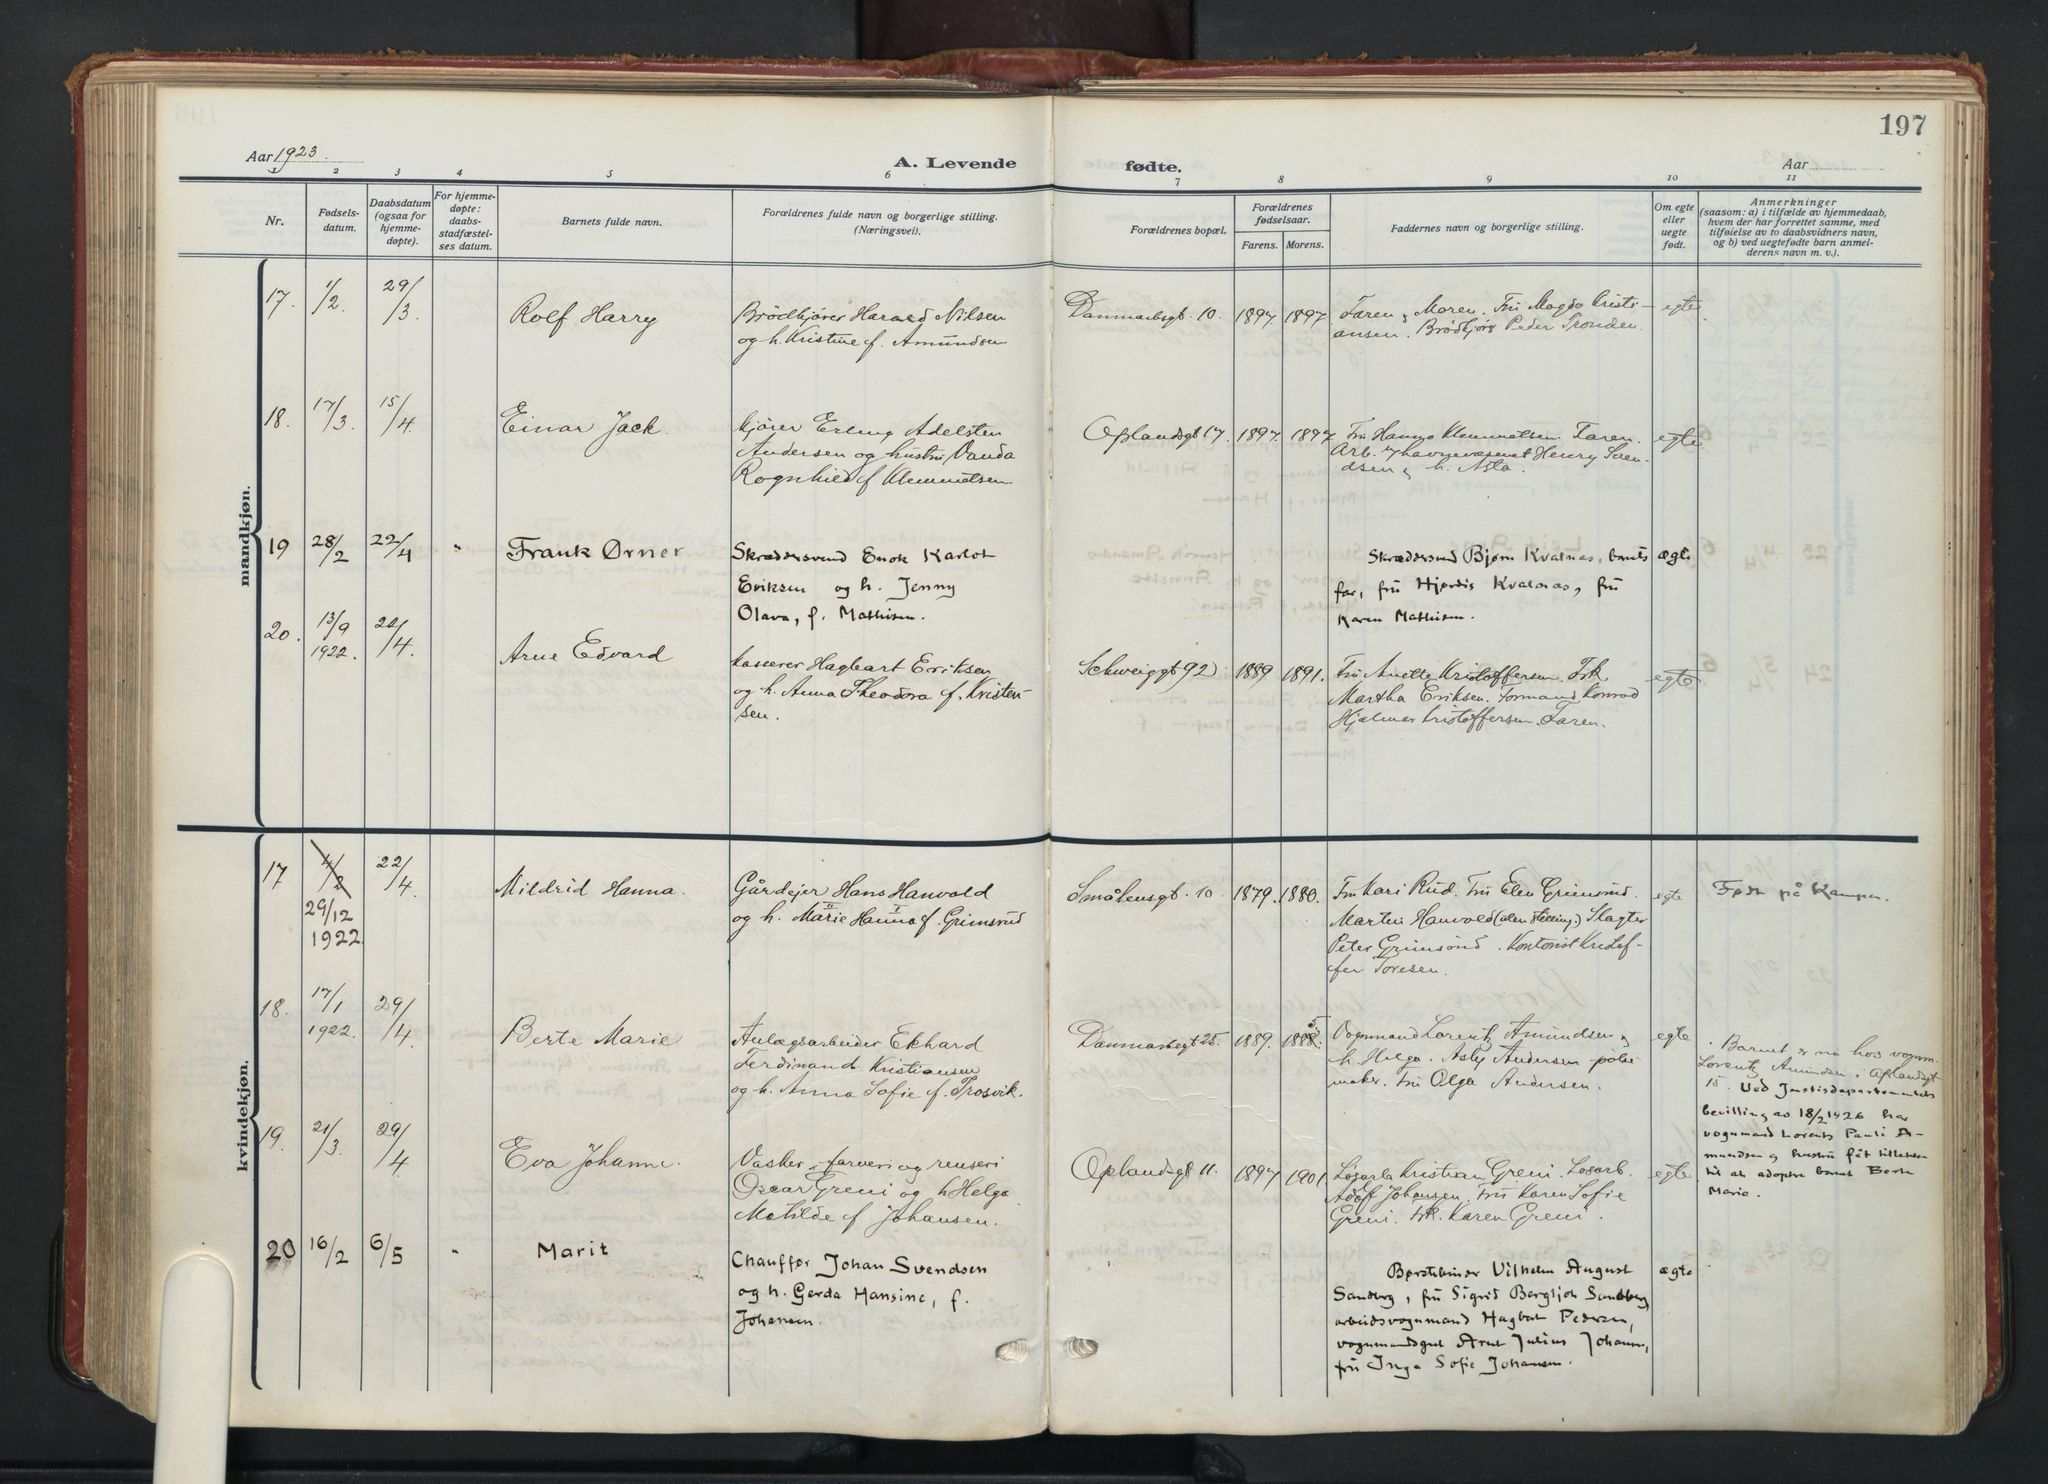 197
Aar 1923.
A. Levende
fødte.
Aar
1 2 3 4 5 6 7 8 9 10 11
Nr.
Fødsels-
datum.
Daabsdatum
(ogsaa for
hjemme-
døpte).
For hjemme-
døpte:
daabs-
stadfæstel-
ses datum.
Barnets fulde navn.
Forældrenes fulde navn og borgerlige stilling.
(Næringsvei).
Forældrenes bopæl.
Forældrenes
fødselsaar.
Farens. Morens.
Faddernes navn og borgerlige stilling.
Om egte
eller
uegte
født.
Anmerkninger
(saasom: a) i tilfælde av hjemmedaab,
hvem der har forrettet samme, med
tilføielse av to daabsvidners navn,
og b) ved uegtefødte barn anmel-
derens navn m. v.).
mandkjøn.
17. 1/2. 29/3.
Rolf Harry
Brödkjører Harald Nilsen
og h. Kristine f. Amundsen
Danmarksgt. 10. 1897. 1897.
Faren, Moren. Fru Magda Kristi-
ansen. Brödkjörer Peder Tronden.
egte
18. 17/3. 15/4.
Einar Jack.
kjører Erling Adelsten
Andersen og hustru Vanda
Ragnhild f Klemmetsen
Oplandsgt 17. 1897. 1897.
Fru Hanna Klemmetsen. Faren.
Arb. v/havnevæsenet Henry Sven-
dsen og h. Asta.
egte
19 28/2 22/4 "
Frank Ørner
Skræddersvend Enok Karlot
Eriksen og h. Jenny
Olava, f. Mathisen.
Skræddersvend Bjørn Kvalnas, barnets
far, fru Hjørdis Kvalnas, fru
Karen Mathisen.
ægte
20. 13/9 1922. 22/4.
Arne Edvard
kasserer Hagbart Eriksen
og h. Anna Theodora f. Kristen-
sen.
Schweiggt 92 1889 1891.
Fru Anette Kristoffersen. Frk.
Martha Eriksen. Formand Konrad
Hjalmar Kristoffersen. Faren.
egte
kvindekjøn.
17 4/2 22/4.
29/12
1922.
Mildrid Hanna.
Gårdejer Hans Hanvold
og h. Marie Hanna f. Grimsrud
Smålensgt. 10 1879. 1880.
Fru Kari Rud. Fru Elen Grimsrud
Martin Hanvold (uten stilling.) Slagter
Peter Grimsrud. Kontorist Kristof-
fer Toresen.
egte
Født på Kampen.
18. 17/1 1922. 29/4.
Berte Marie
Anlægsarbeider Ekhard
Ferdinand Kristiansen
og h. Anna Sofie f. Trosvik.
Danmarksgt 25. 1889. 1888.
Vognmand Lorentz Amundsen og
h. Helga. Asly Andersen
maker. Fru Olga Andersen.
egte
Barnet er nu hos vognm.
Lorentz Amundsen, Oplandsgt
15. Ved Justisdepartementets
bevilling av 18/2 1926 har
vognmand Lorentz Pauli A-
mundsen og hustru fåt tilladelse
til at adoptere barnet Berte
Marie.
19. 21/3. 29/4
Eva Johanne.
Vasker, farveri og renseri
Oscar Greni og h Helga
Matilde f Johansen.
Oplandsgt 11. 1897 1901.
Kristian Greni. Løsarb.
Adolf Johansen. Fru Karen Sofie
Greni. Frk. Karen Greni.
egte
20 16/2 6/5 "
Marit
Chauffør Johan Svendsen
og h. Gerda Hansine, f.
Johansen.
Børstebinder Vilhelm August
Sandberg, fru Sigrid Bergljot Sandberg,
arbeidsvognmand Hagbart Pedersen,
vognmandsgut Arnt Julius Johansen,
fru Inga Sofie Johansen.
ægte